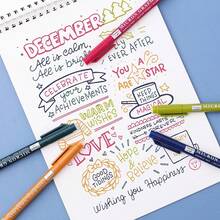 DECEMBER
All is calm,
All is bright
EVER AFTER
CELEBRATE
YOUR
ACHIEVEMENTS
YOU
ARE A
STAR
KEEP
THINGS
MAGICAL
WARM
WISHES
LOVE
KINDNESS
GOOD
THINGS
Hope
Believe
Wishing you Happiness